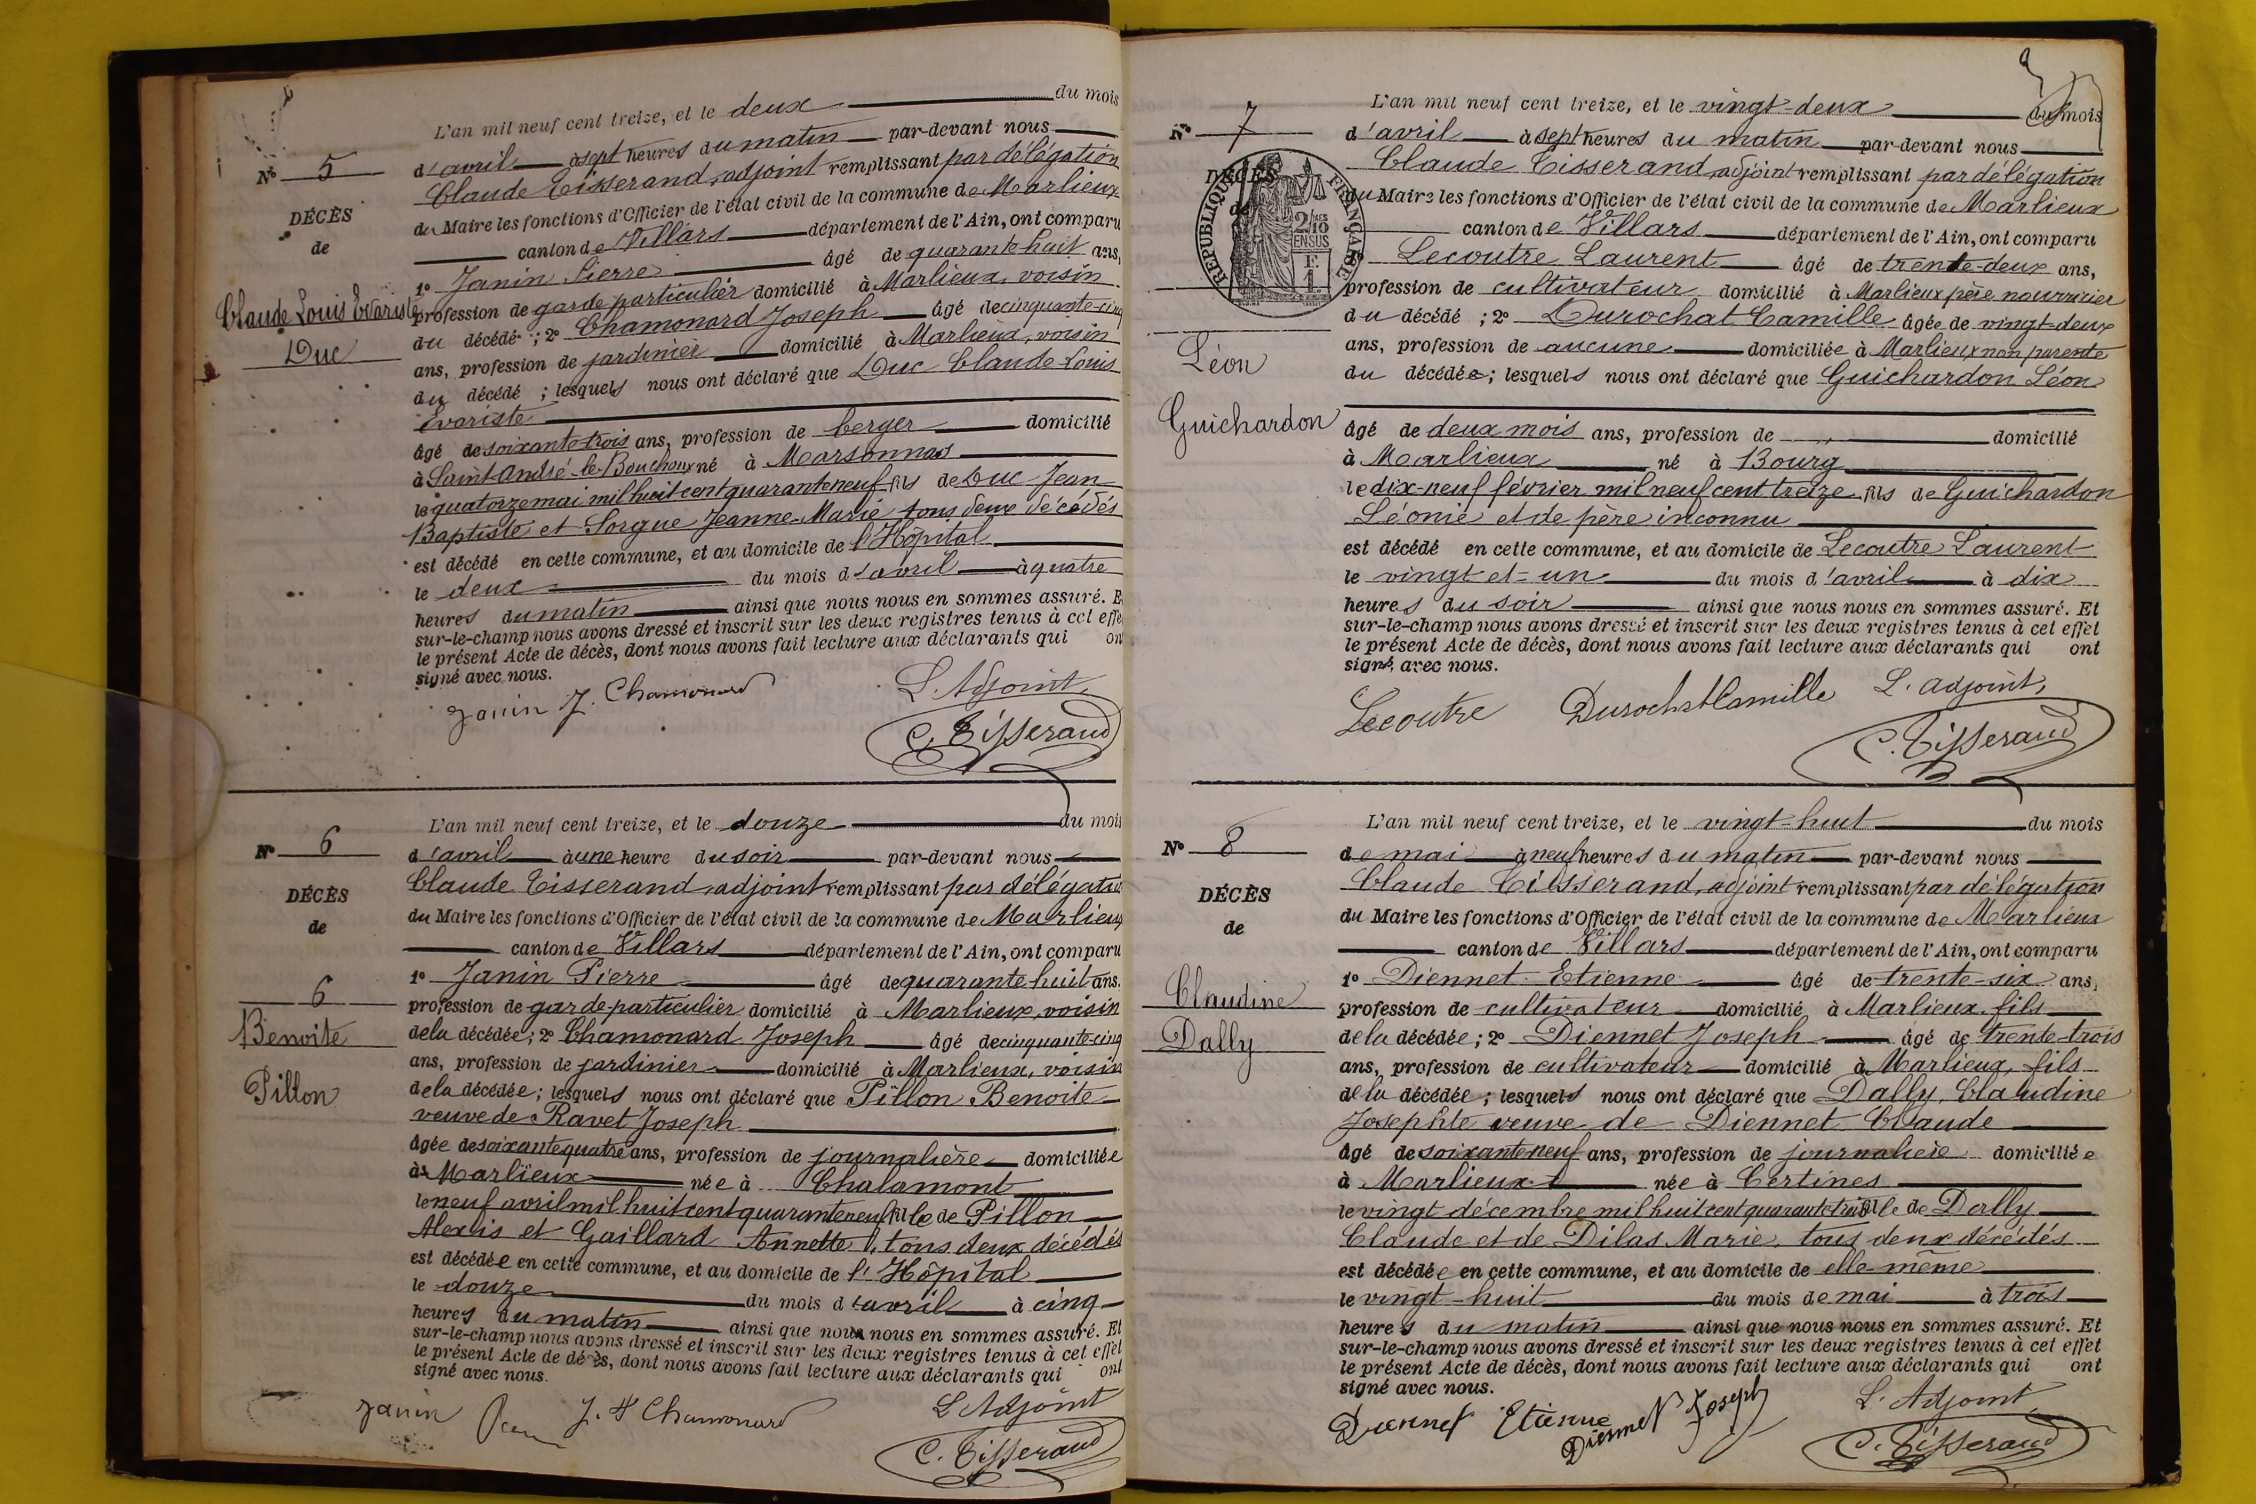 L'an mil neuf cent treize, et le deux du mois
d'avril à sept heures du matin par-devant nous
Claude Tisserand, adjoint remplissant par délégation
du Maire les fonctions d'Officier de l'état civil de la commune de Marlieux
canton de Villars département de l'Ain, ont comparu
1º Janin Pierre âgé de quarante huit ans,
profession de garde particulier domicilié à Marlieux, voisin
du décédé ; 2º Chamonard Joseph âgé de cinquante-cinq
ans, profession de jardinier domicilié à Marlieux, voisin
du décédé ; lesquels nous ont déclaré que Duc Claude Louis
Evariste
âgé de soixante trois ans, profession de berger domicilié
à Saint-André-le-Bouchoux né à Marsonnas
le quatorze mai mil huit cent quarante neuf fils de Duc Jean
Baptiste et Sorgue Jeanne-Marie tous deux décédés
est décédé en cette commune, et au domicile de l'Hôpital
le deux du mois d'avril à quatre
heures du matin ainsi que nous nous en sommes assuré. E
sur-le-champ nous avons dressé et inscrit sur les deux registres tenus à cet effe
le présent Acte de décès, dont nous avons fait lecture aux déclarants qui on
signé avec nous.
Janin J. Chamonard L'Adjoint,
C. Tisserand
Nº 5
DÉCÈS
de
Claude Louis Evariste
Duc
L'an mil neuf cent treize, et le douze du moi
d'avril à une heure du soir par-devant nous
Claude Tisserand, adjoint remplissant par délégatio
du Maire les fonctions d'Officier de l'état civil de la commune de Marlieux
canton de Villars département de l'Ain, ont comparu
1º Janin Pierre âgé de quarante huit ans.
profession de garde particulier domicilié à Marlieux, voisin
de la décédée ; 2º Chamonard Joseph âgé de cinquante-cinq
ans, profession de jardinier domicilié à Marlieux, voisin
de la décédée ; lesquels nous ont déclaré que Pillon Benoite
veuve de Ravet Joseph
âgée de soixante quatre ans, profession de journalière domiciliée
à Marlieux née à Chalamont
le neuf avril mil huit cent quarante neuf fille de Pillon
Alexis et Gaillard Annette, tous deux décédés
est décédée en cette commune, et au domicile de l'Hôpital
le douze du mois d'avril à cinq
heures du matin ainsi que nous nous en sommes assuré. Et
sur-le-champ nous avons dressé et inscrit sur les deux registres tenus à cet effet
le présent Acte de décès, dont nous avons fait lecture aux déclarants qui ont
signé avec nous.
Janin J. Chamonard L'Adjoint
C. Tisserand
Nº 6
DÉCÈS
de
6
Benoite
Pillon
L'an mil neuf cent treize, et le vingt-deux du mois
d'avril à sept heures du matin par-devant nous
Claude Tisserand, adjoint remplissant par délégation
du Maire les fonctions d'Officier de l'état civil de la commune de Marlieux
canton de Villars département de l'Ain, ont comparu
Lecoutre Laurent âgé de trente-deux ans,
profession de cultivateur domicilié à Marlieux père nourricier
du décédé ; 2º Durochat Camille âgée de vingt-deux
ans, profession de aucune domiciliée à Marlieux non parente
du décédé ; lesquels nous ont déclaré que Guichardon Léon
âgé de deux mois ans, profession de " domicilié
à Marlieux né à Bourg
le dix-neuf février mil neuf cent treize fils de Guichardon
Léonie et de père inconnu
est décédé en cette commune, et au domicile de Lecoutre Laurent
le vingt et-un du mois d'avril à dix
heures du soir ainsi que nous nous en sommes assuré. Et
sur-le-champ nous avons dressé et inscrit sur les deux registres tenus à cet effet
le présent Acte de décès, dont nous avons fait lecture aux déclarants qui ont
signé avec nous.
Lecoutre Durochat Camille L'adjoint,
C. Tisserand
Nº 7
DÉCÈS
de
RÉPUBLIQUE FRANÇAISE
2/10 EN SUS
Léon
Guichardon
L'an mil neuf cent treize, et le vingt-huit du mois
de mai à neuf heures du matin par-devant nous
Claude Tisserand, adjoint remplissant par délégation
du Maire les fonctions d'Officier de l'état civil de la commune de Marlieux
canton de Villars département de l'Ain, ont comparu
1º Diennet Etienne âgé de trente-six ans,
profession de cultivateur domicilié à Marlieux, fils
de la décédée ; 2º Diennet Joseph âgé de trente-trois
ans, profession de cultivateur domicilié à Marlieux, fils
de la décédée ; lesquels nous ont déclaré que Dally Claudine
Josephte veuve de Diennet Claude
âgé de soixante neuf ans, profession de journalière domiciliée
à Marlieux née à Certines
le vingt décembre mil huit cent quarante trois fille de Dally
Claude et de Dilas Marie, tous deux décédés
est décédée en cette commune, et au domicile de elle-même
le vingt-huit du mois de mai à trois
heures du matin ainsi que nous nous en sommes assuré. Et
sur-le-champ nous avons dressé et inscrit sur les deux registres tenus à cet effet
le présent Acte de décès, dont nous avons fait lecture aux déclarants qui ont
signé avec nous.
Diennet Etienne Diennet Joseph L'Adjoint
C. Tisserand
Nº 8
DÉCÈS
de
Claudine
Dally